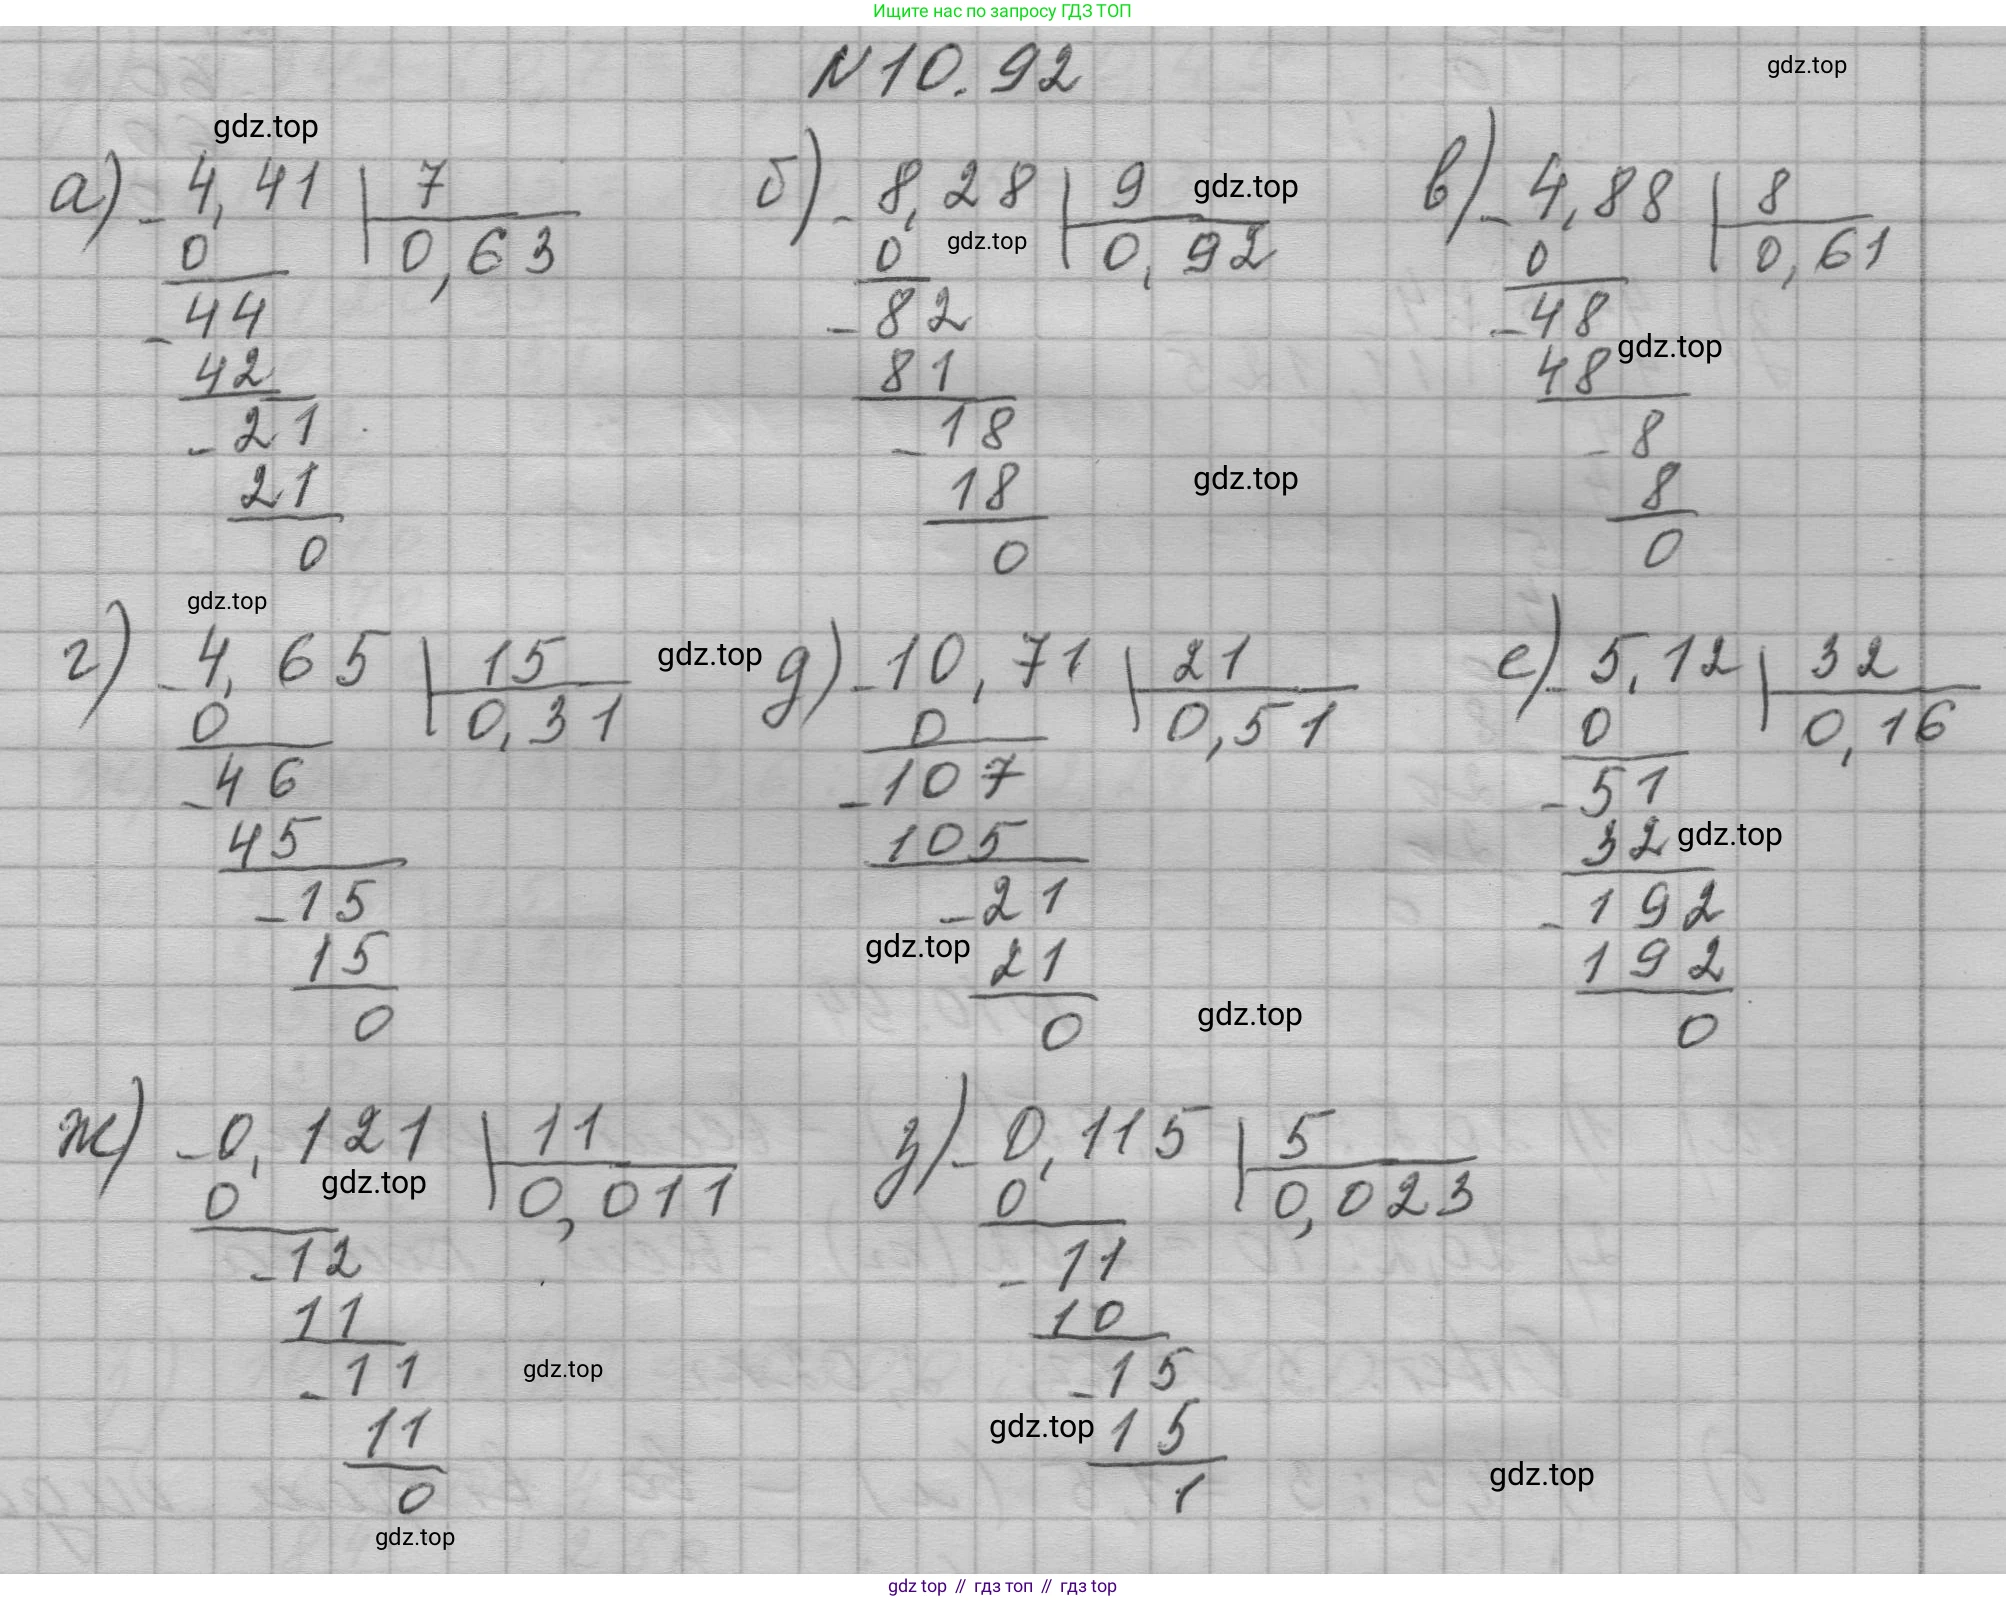 Ищите нас по запросу ГДЗ ТОП
N 10.92
gdz.top
gdz.top
а) - 4,41 | 7
0 | 0,63
- 44
42
- 21
21
0
б) - 8,28 | 9 gdz.top
0 gdz.top | 0,92
- 82
81
- 18
18 gdz.top
0
в) - 4,88 | 8
0 | 0,61
- 48
48 gdz.top
- 8
8
0
gdz.top
г) - 4,65 | 15
0 | 0,31
- 46
45
- 15
15
0
gdz.top
д) - 10,71 | 21
0 | 0,51
- 107
105
- 21
gdz.top 21
0 gdz.top
е) - 5,12 | 32
0 | 0,16
- 51
32 gdz.top
- 192
192
0
ж) - 0,121 | 11
0 gdz.top | 0,011
- 12
11
- 11 gdz.top
11
0
gdz.top
з) - 0,115 | 5
0 | 0,023
- 11
10
- 15
gdz.top 15
1 gdz.top
gdz top // гдз топ // gdz top